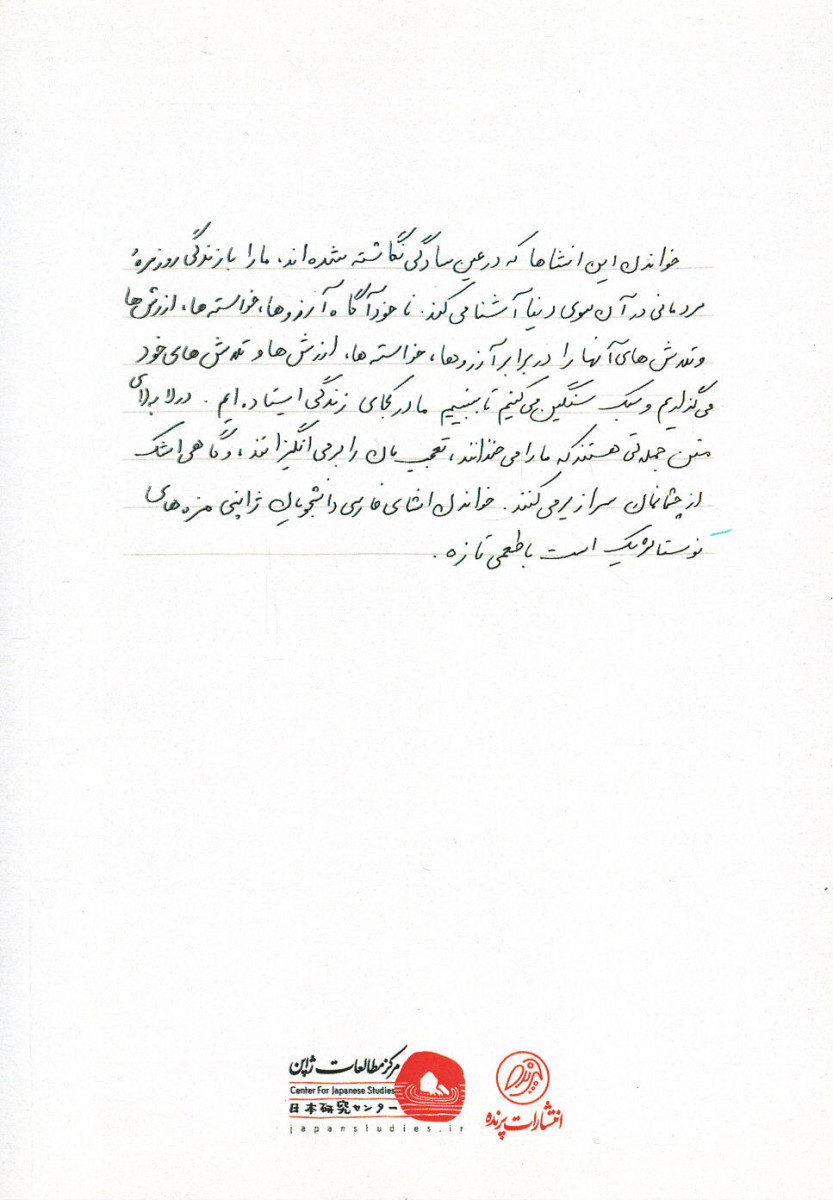 خواندن این انشاها که در عین سادگی نگاشته شده‌اند، ما را با زندگی روزمرهٔ
مردمانی در آن سوی دنیا آشنا می‌کند. ناخودآگاه آرزوها، خواسته‌ها، ارزش‌ها
و تلاش‌های آنها را در برابر آرزوها، خواسته‌ها، ارزش‌ها و تلاش‌های خود
می‌گذاریم و سبک سنگین می‌کنیم تا ببینیم ما در کجای زندگی ایستاده‌ایم. در لا به لای
متن جملاتی هستند که ما را می‌خندانند، تعجب‌مان را برمی‌انگیزانند، و گاهی اشک
از چشمانمان سرازیر می‌کنند. خواندن انشای فارسی دانشجویان ژاپنی مزه‌های
نوستالژیک است با طعمی تازه.
مرکز مطالعات ژاپن
Center For Japanese Studies
日本研究センター
japanstudies.ir
پرنده
انتشارات پرنده